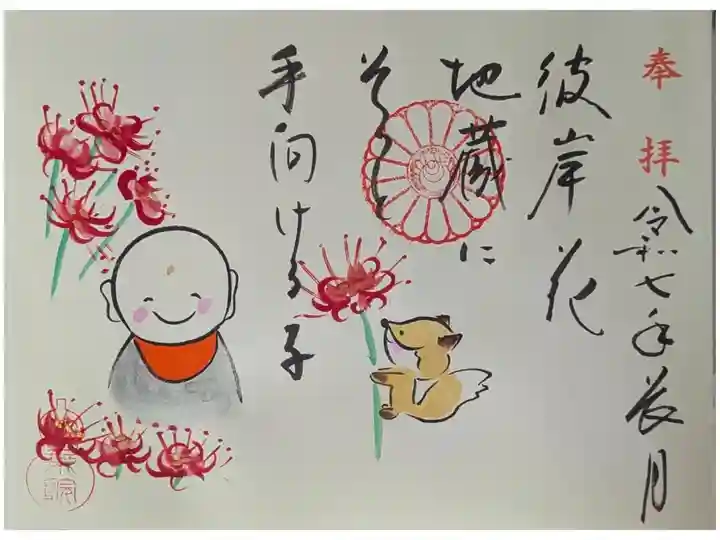 奉拝
令和七年長月
彼岸花
地蔵に
そっと
手向ける子